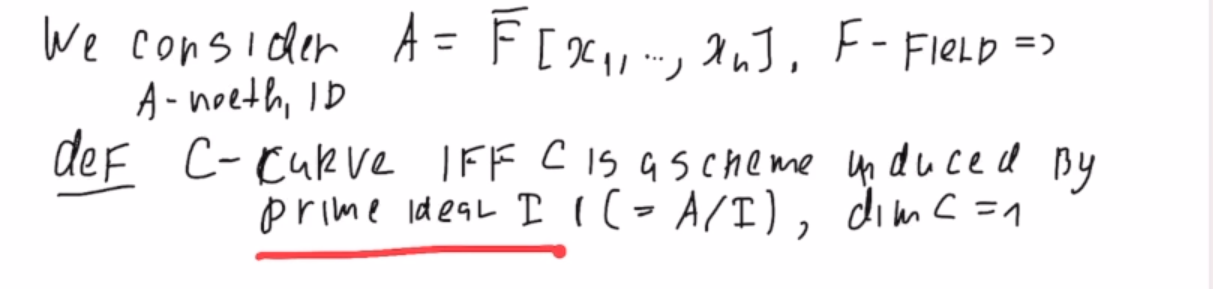 We consider A = F̅ [x₁, ..., xₙ], F - FIELD =>
A - noeth, ID
def C - curve IFF C is a scheme induced By
prime ideal I (C = A/I), dim C = 1